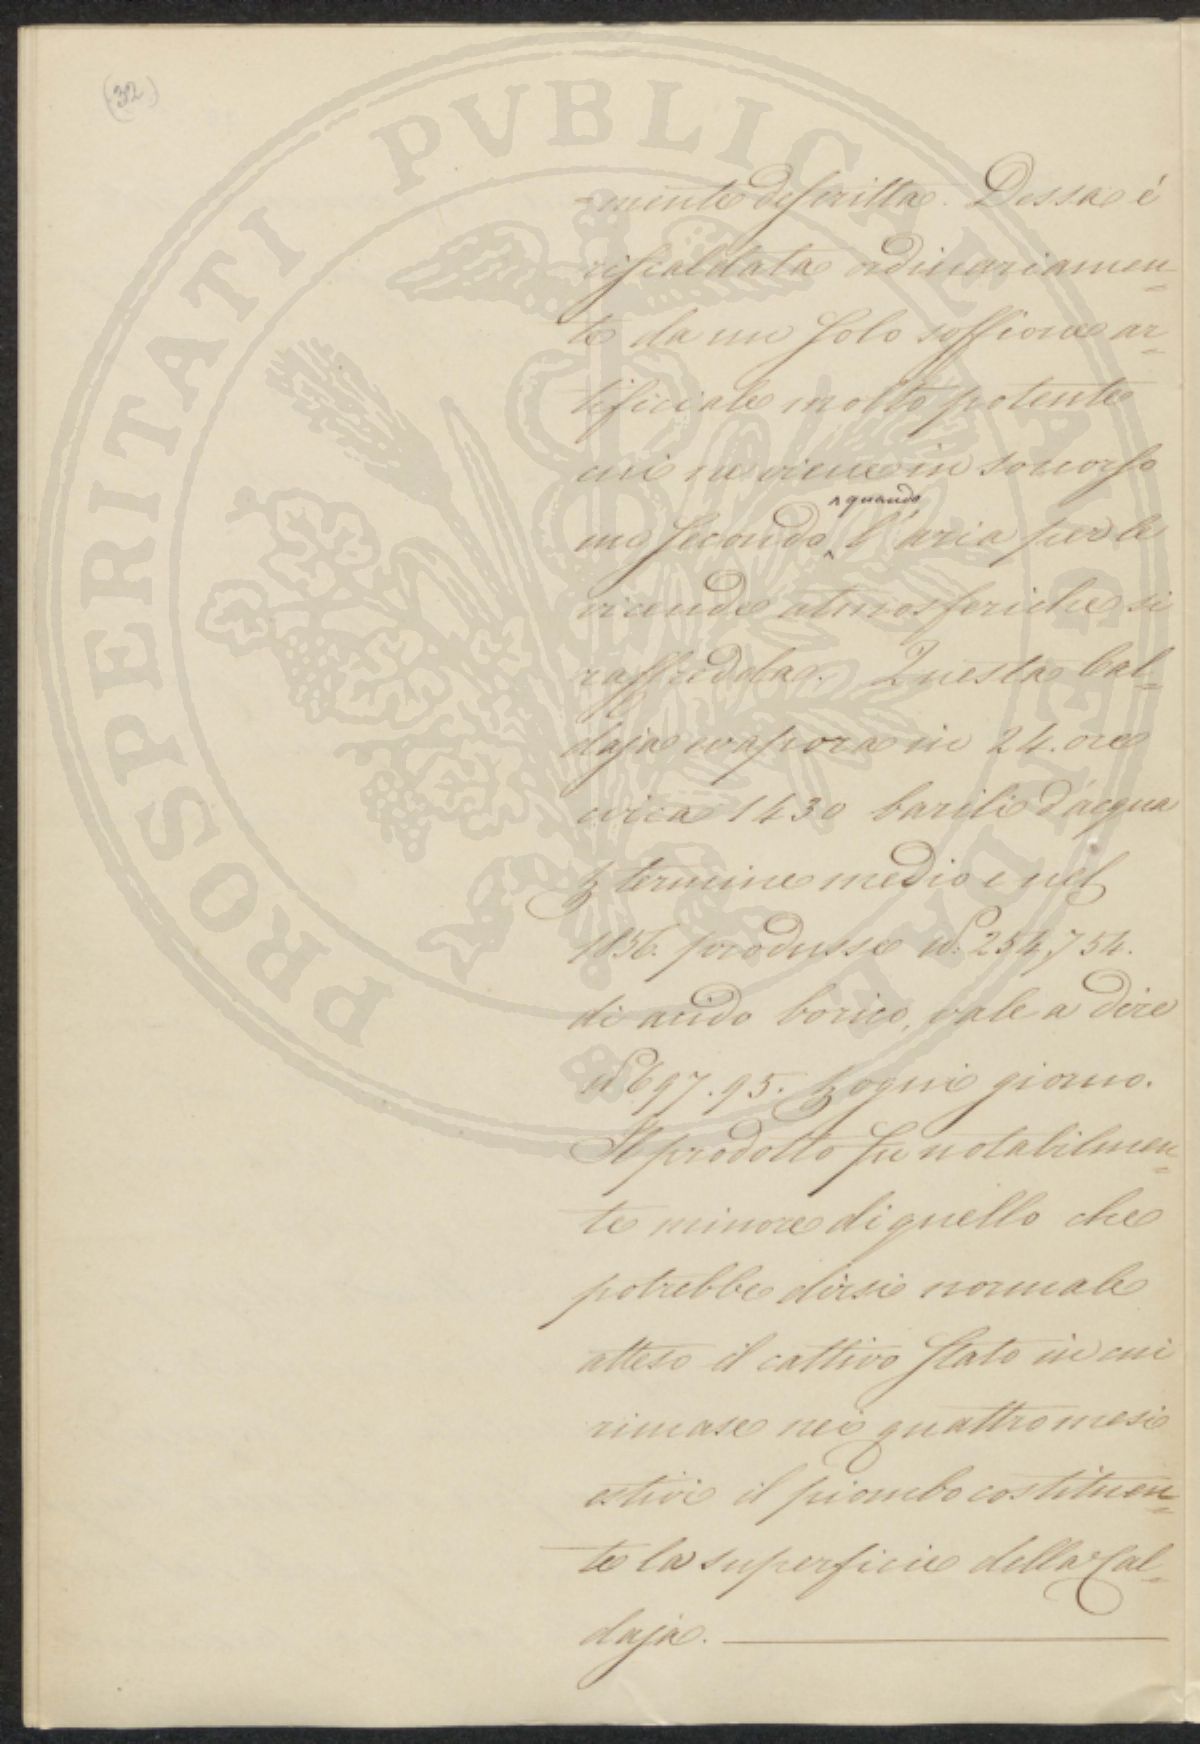 (32)
-mente descritta. Dessa é
riscaldata ordinariamen=
te da un solo soffione ar=
tificiale molto potente
cui ne viene in soccorso
uno secondo l'aria per le
^ quando
vicende atmosferiche si
raffredda. Questa Cal=
daja evapora in 24. ore
circa 1430 barili d'acqua
termine medio e nel
1856. produsse 254,754.
di acido borico, vale a dire
697.95. ogni giorno.
Il prodotto fu notabilmen=
te minore di quello che
potrebbe dirsi normale
atteso il cattivo stato in cui
rimase nei quattro mesi
estivi il piombo costituen=
te la superficie della Cal=
daja.
PROSPERITATI PVBLICAE AVGENDAE